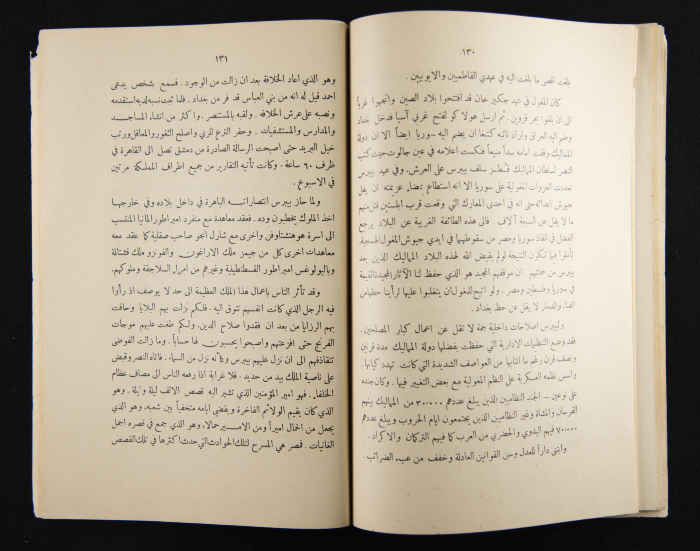 ١٣٠
بلغت اقصى ما بلغت اليه في عهدي الفاطميين والايوبيين .
كان المغول في عهد جنكيز خان قد افتتحوا بلاد الصين واتجهوا غرباً
الى ان بلغوا بحر قزوين . ثم ارسل هولاكو لفتح غربي آسيا فدخل بغداد
وضم اليه العراق واراد نائبه كتبغا ان يضم اليه سوريا ايضاً الا ان دولة
المماليك وقفت امامه سداً منيعاً فنكست اعلامه في عين جالوت حيث كتب
النصر لسلطان المماليك قُطُز سلف بيبرس على العرش . وفي عهد بيبرس
تعددت الغزوات المغولية على سوريا الا انه استطاع بمضاء عزيمته ان يفل
جيوش اعدائه حتى انه في احدى المعارك التي وقعت قرب ابلستين قتل منهم
ما لا يقل عن السبعة آلاف . فالى هذه الطائفة الغريبة عن البلاد يرجع
الفضل في انقاذ سوريا ومصر من سقوطهما في ايدي جيوش المغول الهمجية .
تأملوا فيما تكون النتيجة لو لم يقيض الله لهذه البلاد المماليك الذين يعد
بيبرس من جملتهم . ان موقفهم المجيد هو الذي حفظ لنا الآثار المجيدة القيمة
في سوريا وفلسطين ومصر . ولو اتيح للمغول ان يتغلبوا عليها لرأينا حظها من
الفناء والدمار لا يقل عن حظ بغداد .
ولبيبرس اصلاحات داخلية جمة لا تقل عن اعمال كبار المصلحين .
فقد وضع التنظيمات الادارية التي حفظت بفضلها دولة المماليك مدة قرنين
ونصف قرن رغم ما انتابها من العواصف الشديدة التي كانت تهدد كيانها .
واسس نظمه العسكرية على النظم المغولية مع بعض التغيير فيها . وكان جنده
على نوعين - الجند النظاميين الذين يبلغ عددهم ٣٠،٠٠٠ من المماليك بينهم
الفرسان والمشاة وغير النظاميين الذين يجتمعون ايام الحروب ويبلغ عددهم
٧٠،٠٠٠ فيهم البدوي والحضري من العرب كما فيهم التركمان والاكراد .
وابتنى داراً للعدل وسن القوانين العادلة وخفف من عبء الضرائب .
١٣١
وهو الذي اعاد الخلافة بعد ان زالت من الوجود . فسمع بشخص يدعى
احمد قيل له انه من بني العباس قد فر من بغداد . فلما ثبت نسبه لديه استقدمه
ونصبه على عرش الخلافة . ولقبه بالمستنصر . واكثر من انشاء المساجد
والمدارس والمستشفيات . وحفر الترع للري واصلح الثغور والمعاقل ورتب
خيل البريد حتى اصبحت الرسالة الصادرة من دمشق تصل الى القاهرة في
ظرف ٦٠ ساعة . وكانت تأتيه التقارير من جميع اطراف المملكة مرتين
في الاسبوع .
ولما حاز بيبرس انتصاراته الباهرة في داخل بلاده وفي خارجها
اخذ الملوك يخطبون وده . فعقد معاهدة مع منفرد امبراطور المانيا المنتسب
الى اسرة هوهنشتاوفن واخرى مع شارل انجو صاحب صقلية كما عقد معه
معاهدات اخرى كل من جيمز ملك الاراغون والفونزو ملك قشتالة
وباليولوغس امبراطور القسطنطينية وغيرهم من امراء السلاجقة وملوكهم .
وقد تأثر الناس باعمال هذا الملك العظيمة الى حد لا يوصف اذ رأوا
فيه الرجل الذي كانت انفسهم تتوق اليه . فلكم نزلت بهم البلايا وحاقت
بهم الرزايا من بعد ان فقدوا صلاح الدين . ولكم طغت عليهم موجات
الفرنج حتى افزعتهم واصبحوا يحسبون لها حساباً . وما زالت الفوضى
تتقاذفهم الى ان نزل عليهم بيبرس وكأنه نزل من السماء . فاتاه النصر وقبض
على ناصية الملك بيد من حديد . فلا غرابة اذا رفعه الناس الى مصاف عظام
الخلفاء . فهو امير المؤمنين الذي تشير اليه قصص الالف ليلة وليلة . وهو
الذي كان يقيم الولائم الفاخرة ويقضي ايامه متخفياً بين شعبه ، وهو الذي
يجعل من الحمال اميراً ومن الامير حمالا . وهو الذي جمع في قصره اجمل
الغانيات . فمصر هي المسرح لتلك الحوادث التي حدث اكثرها في تلك القصص